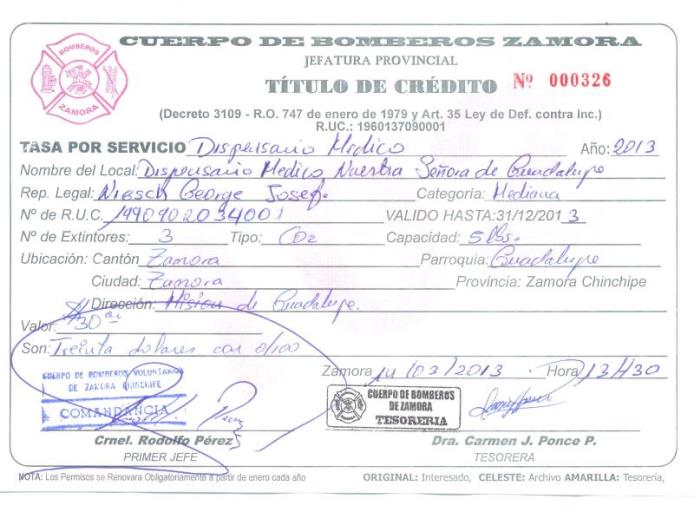 BOMBEROS
ZAMORA
CUERPO DE BOMBEROS ZAMORA
JEFATURA PROVINCIAL
TÍTULO DE CRÉDITO Nº 000326
(Decreto 3109 - R.O. 747 de enero de 1979 y Art. 35 Ley de Def. contra Inc.)
R.U.C.: 1960137090001
TASA POR SERVICIO Dispensario Medico Año: 2013
Nombre del Local: Dispensario Medico Nuestra Señora de Guadalupe
Rep. Legal: George Josef. Categoría: Mediana
Nº de R.U.C. 1990902034001 VALIDO HASTA:31/12/2013
Nº de Extintores: 3 Tipo: CO2 Capacidad: 5 lbs.
Ubicación: Cantón Zamora Parroquia: Guadalupe
Ciudad: Zamora Provincia: Zamora Chinchipe
Dirección: Mision de Guadalupe.
Valor: $30 00
Son: Treinta dolares con 0/100
Zamora 14/02/2013 Hora 13H30
CUERPO DE BOMBEROS VOLUNTARIOS
DE ZAMORA CHINCHIPE
COMANDANCIA
CUERPO DE BOMBEROS
DE ZAMORA
TESORERIA
Crnel. Rodolfo Pérez Dra. Carmen J. Ponce P.
PRIMER JEFE TESORERA
NOTA: Los Permisos se Renovara Obligatoriamente a partir de enero cada año ORIGINAL: Interesado, CELESTE: Archivo AMARILLA: Tesorería,